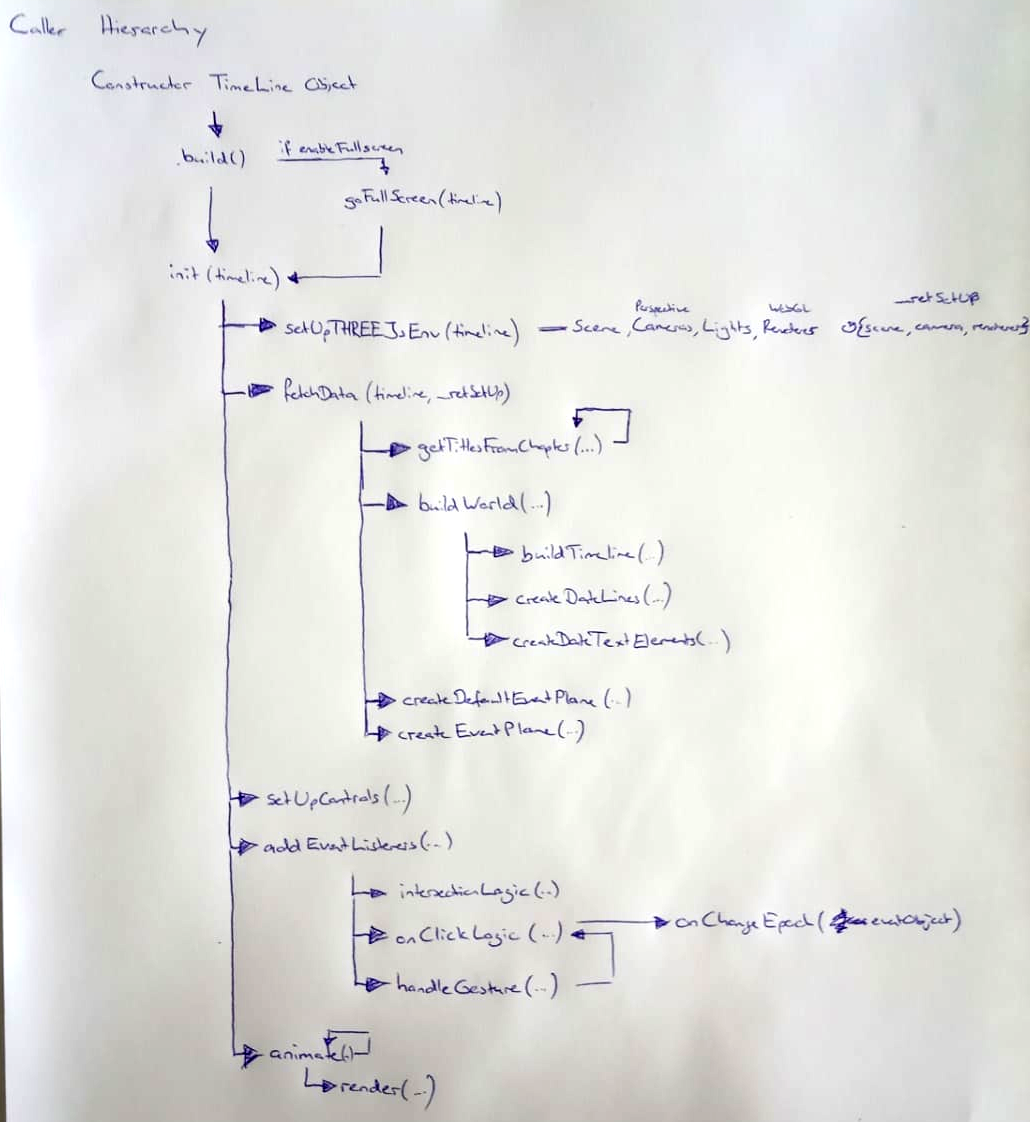 Caller Hierarchy
Constructor TimeLine Object
.build() if enableFullscreen
goFullScreen(timeline)
init(timeline)
Perspective WebGL _retSetUp
setUpTHREEJsEnv(timeline) — Scene, Cameras, Lights, Renderer {scene, camera, renderer}
fetchData (timeline, _retSetUp)
getTitlesFromChapter(...)
buildWorld(...)
buildTimeline(..)
createDateLines(...)
createDateTextElements(...)
createDefaultEventPlane (..)
createEventPlane(..)
setUpControls(...)
addEventListeners(...)
intersectionLogic(..)
onClickLogic (...) onChangeEpoch( eventObject)
handleGesture(...)
animate(.)
render(...)